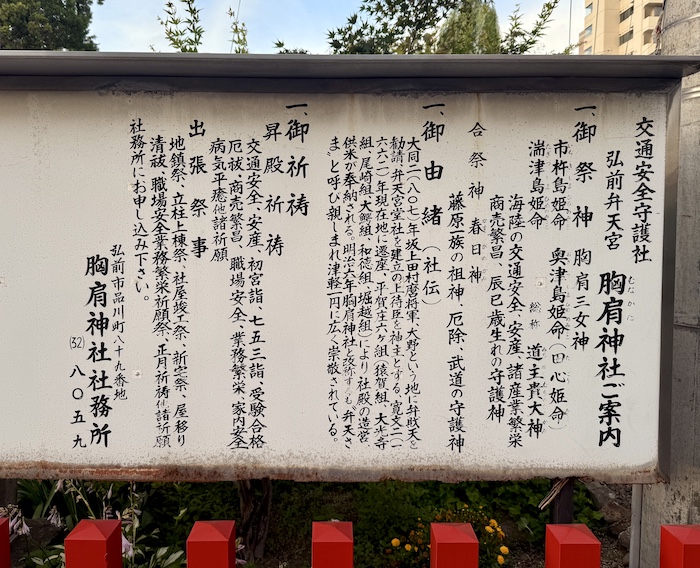 交通安全守護社
弘前弁天宮 胸肩神社ご案内
むなかた
一、御祭神 胸肩三女神
市杵島姫命 奥津島姫命（田心姫命）
湍津島姫命 総称 道主貴大神
海陸の交通安全、安産、諸産業繁栄
商売繁昌、辰巳歳生れの守護神
合祭神 春日神
藤原一族の祖神 厄除、武道の守護神
一、御由緒（社伝）
大同二（八〇七）年坂上田村麿将軍、大野という地に弁戝天を
勧請、弁天宮堂社を建立の上侍臣を神主とする、寛文二（一
六六二）年現在地に遷座、平賀庄六ヶ組、猿賀組、大光寺
組、尾崎組、大鰐組、和徳組、堀越組）により社殿の造営、
供米が奉納される。明治六年胸肩神社と改称するも〝弁天さ
ま〟と呼び親しまれ津軽一円に広く崇敬されている。
一、御祈祷
昇殿祈祷
交通安全、安産、初宮詣、七五三詣、受験合格
厄祓、商売繁昌、職場安全、業務繁栄、家内安全
病気平癒他諸祈願
出張祭事
地鎮祭、立柱上棟祭、社屋竣工祭、新宅祭、屋移り
清祓、職場安全業務繁栄祈願祭、正月祈祷他諸祈願
社務所にお申し込み下さい。
弘前市品川町八十九番地
胸肩神社社務所
(32) 八〇五九